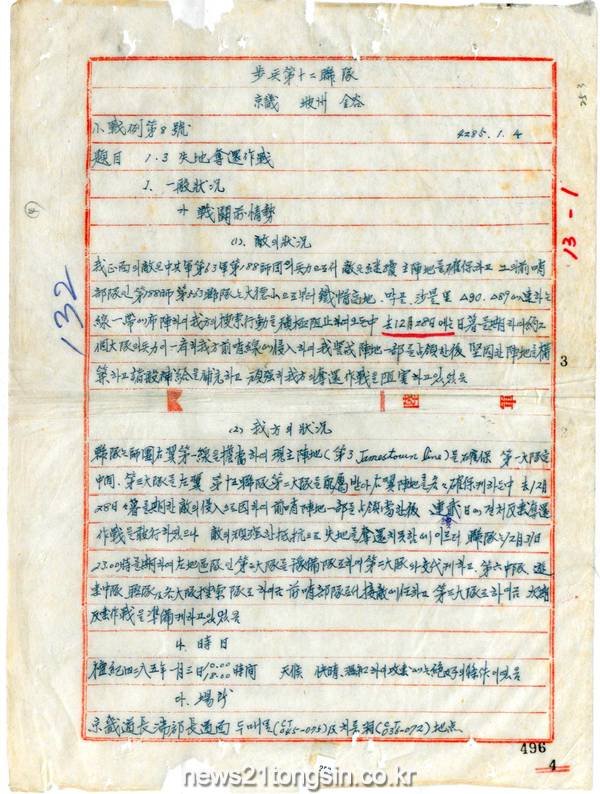 步兵第十二聯隊
京畿 坡州 金谷
小戰例第8號
4285.1.4
題目 1.3 失地奪還作戰
1. 一般狀況
가 戰鬪前情勢
(1). 敵의 狀況
我正面의 敵은 中共軍第63軍第188師團의 兵力으로서 敵은 主陣地를 確保하고 그의 前哨
部隊인 第188師 第563聯隊는 大德山으로부터 鐵帽高地. 沙是里 △90. △89에 連하는
線一帶에 布陣하여 我方의 搜索行動을 積極阻止하여오든中 去12月28日에는 日暮를 期하여 約2
個大隊의 兵力이 一齊히 我方前哨線에 侵入하여 我警戒陣地一部를 占領한後 堅固한 陣地를 構
築하고 頑强히 我方의 奪還作戰을 阻害하고있었음
(2) 我方의 狀況
聯隊는 師團右翼第一線을 擔當하여 現主陣地(第3 Jamestown Line)을 確保 第一大隊는
中間. 第三大隊는 左翼 第十五聯隊第二大隊를 配屬받아 右翼陣地를 各々 確保케하는中 去12月
28日 日暮를 期한 敵의 侵入으로 因하여 前哨陣地一部를 占領當한後 連貳日에 걸쳐 反擊奪還
作戰을 敢行하였으나 敵의 頑强한 抵抗으로 失地를 奪還치못함에 이르러 聯隊는 12月31日
23.00時를 期하여 第二大隊를 豫備隊로하여 第三大隊와 交代케하고. 第六中隊.
各大隊搜索隊로 하여금 前哨部隊로서 接敵에 任하고 第三大隊로 하여금
反擊作戰을 準備케하고있었음
나. 時日
檀紀四二八五年一月三日 10.00 18.00 時間 天候 快晴. 溫和하여 攻擊에는 絶好의 條件이었음
다. 場所
京畿道長湍郡長道面 두매실(CT 045-075)及 (CT 036-072)地点
132
13-1
3
253
496
4
news21tongsin.co.kr